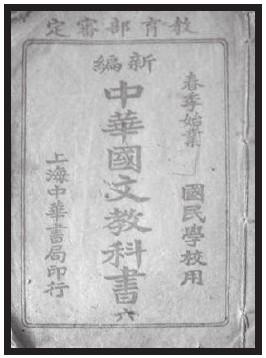 教育部審定
春季始業
國民學校用
新編
中華國文教科書
六
上海中華書局印行